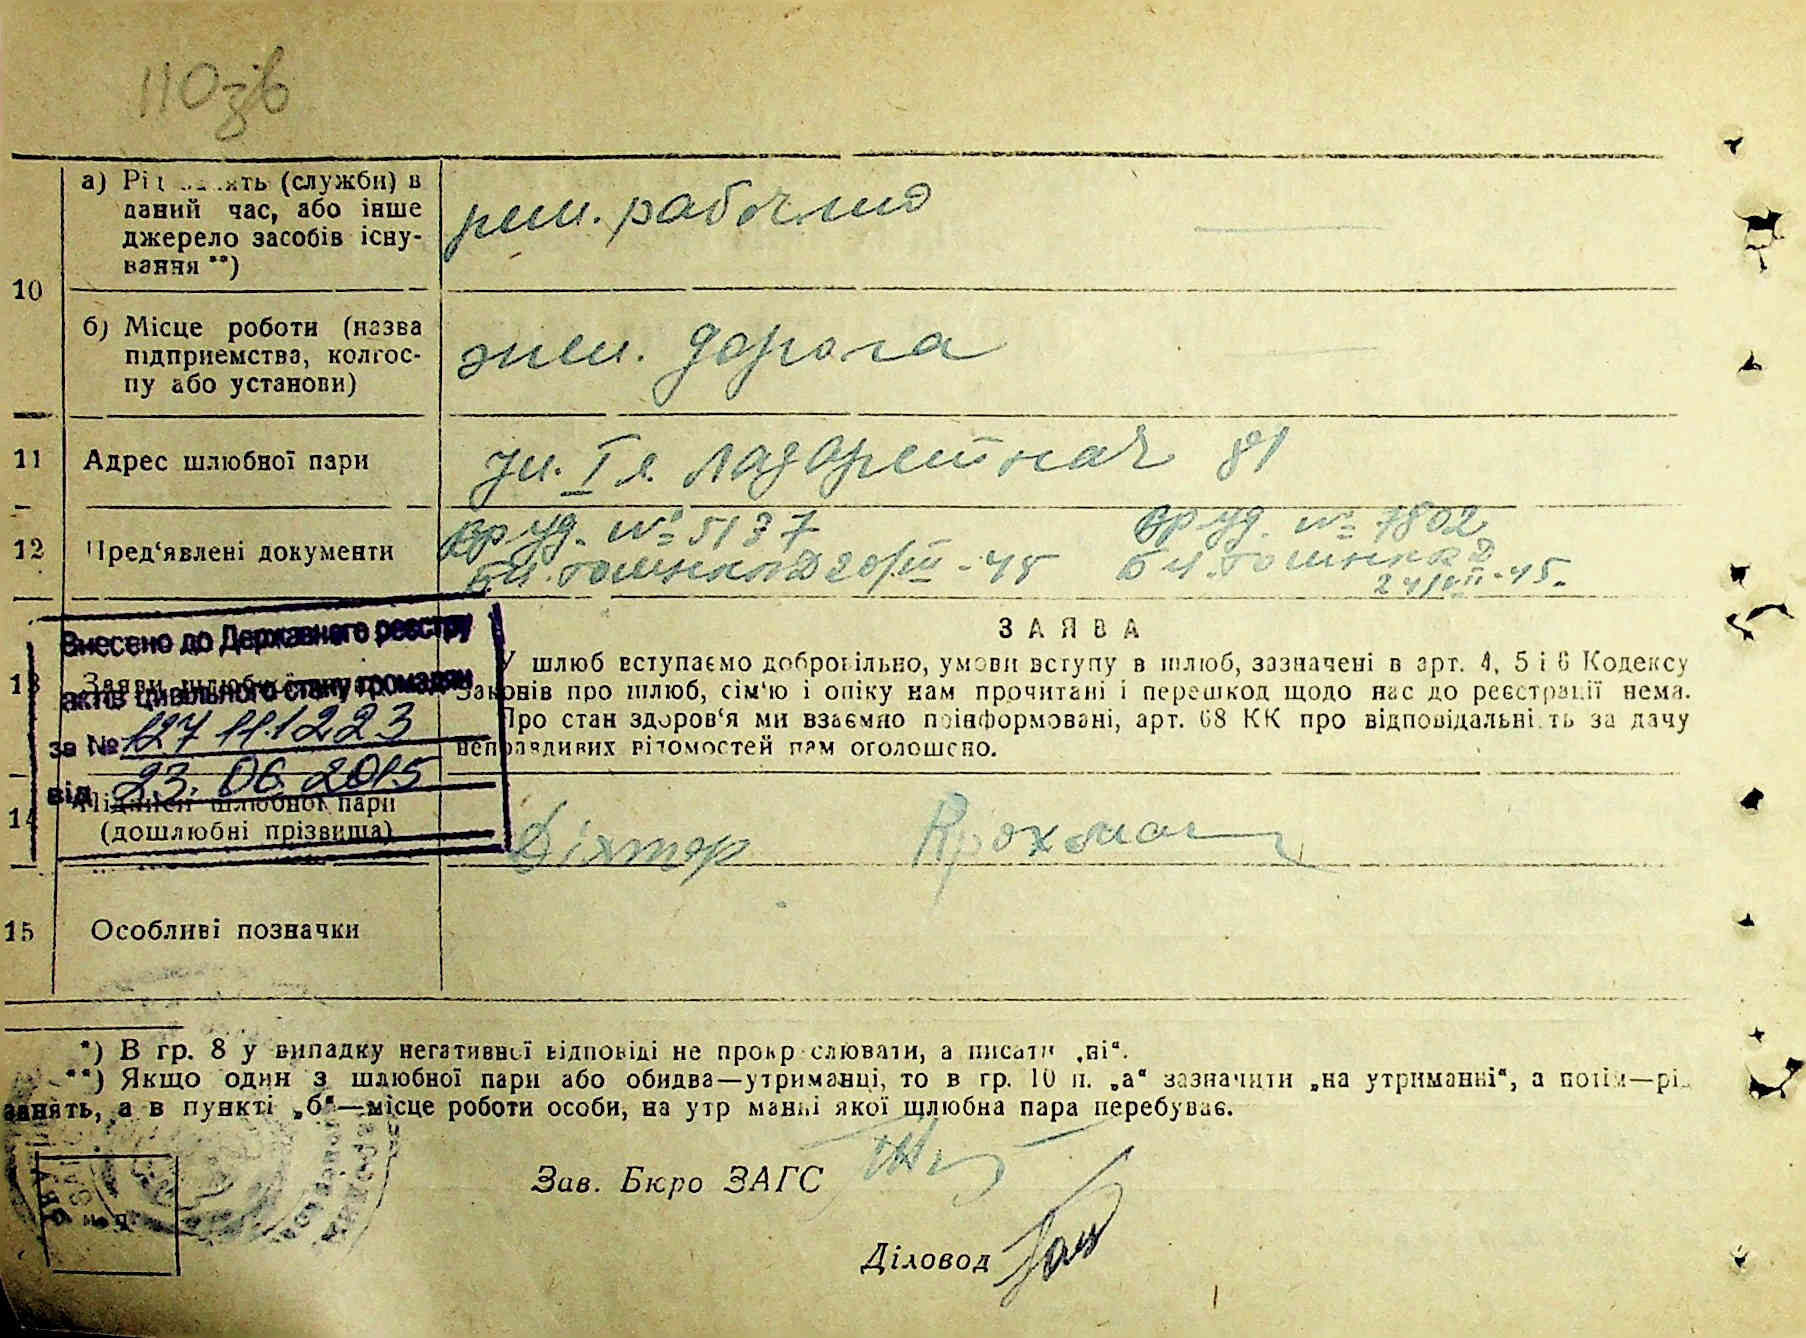 110зв
а) (служби) в
даний час, або інше
джерело засобів існу-
вання **)
рем. рабочий
10
б) Місце роботи (назва
підприємства, колгос-
пу або установи)
жел. дорога
11 Адрес шлюбної пари
ул. I я Лазаретная 81
12 Пред'явлені документи
вр уд. № 5137 вр уд. № 7802
20/III-45
45.
Внесено до Державного реєстру
актів цивільного стану громадян
за № 127 111223
від 23.06.2015
13
ЗАЯВА
У шлюб вступаємо добровільно, умови вступу в шлюб, зазначені в арт. 4, 5 і 6 Кодексу
Законів про шлюб, сім'ю і опіку нам прочитані і перешкод щодо нас до реєстрації нема.
Про стан здоров'я ми взаємно поінформовані, арт. 68 КК про відповідальність за дачу
неправдивих відомостей нам оголошено.
14 Підписи шлюбної пари
(дошлюбні прізвища)
Діхтяр Крохмал
15 Особливі позначки
*) В гр. 8 у випадку негативної відповіді не прокреслювати, а писати „ні“.
**) Якщо один з шлюбної пари або обидва—утриманці, то в гр. 10 п. „а“ зазначити „на утриманні“, а потім—рід
занять, а в пункті „б“—місце роботи особи, на утриманні якої шлюбна пара перебуває.
Зав. Бюро ЗАГС
Діловод